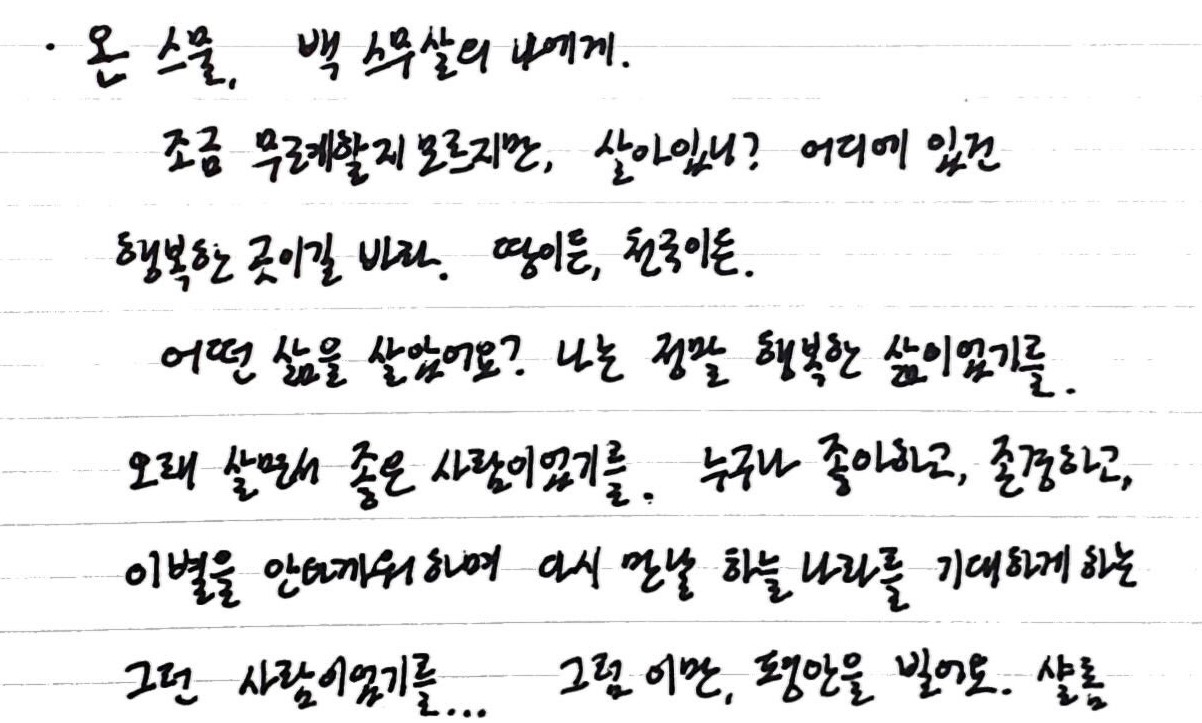 · 온 스물, 백 스무살의 나에게.
조금 무례할지 모르지만, 살아있니? 어디에 있건
행복한 곳이길 바라. 땅이든, 천국이든.
어떤 삶을 살았어요? 나는 정말 행복한 삶이었기를.
오래 살면서 좋은 사람이었기를. 누구나 좋아하고, 존경하고,
이별을 안타까워하며 다시 만날 하늘 나라를 기대하게 하는
그런 사람이었기를... 그럼 이만, 평안을 빌어요. 샬롬